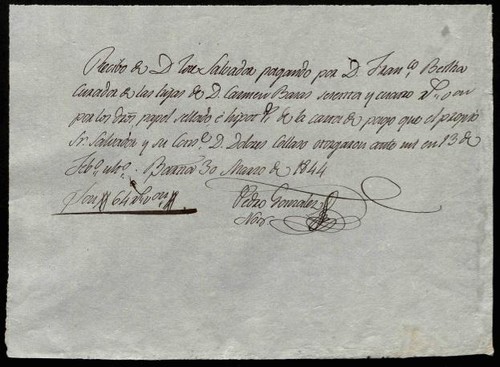 Recibo de D. Jose Salvador pagando por D. Fran.co Beltra
curador de las hijas de D. Carmen Baras sesenta y cuatro r.s on
por los dros, papel sellado é hipot.s de la carta de pago que el propio
Sr. Salvador y su Cons.e D. Dolores Collaso otorgaron ante mi en 13 de
Feb.o ulto. Barna 30 Marzo de 1844
Son 64 r.s on Pedro Gonzalez
Not.o